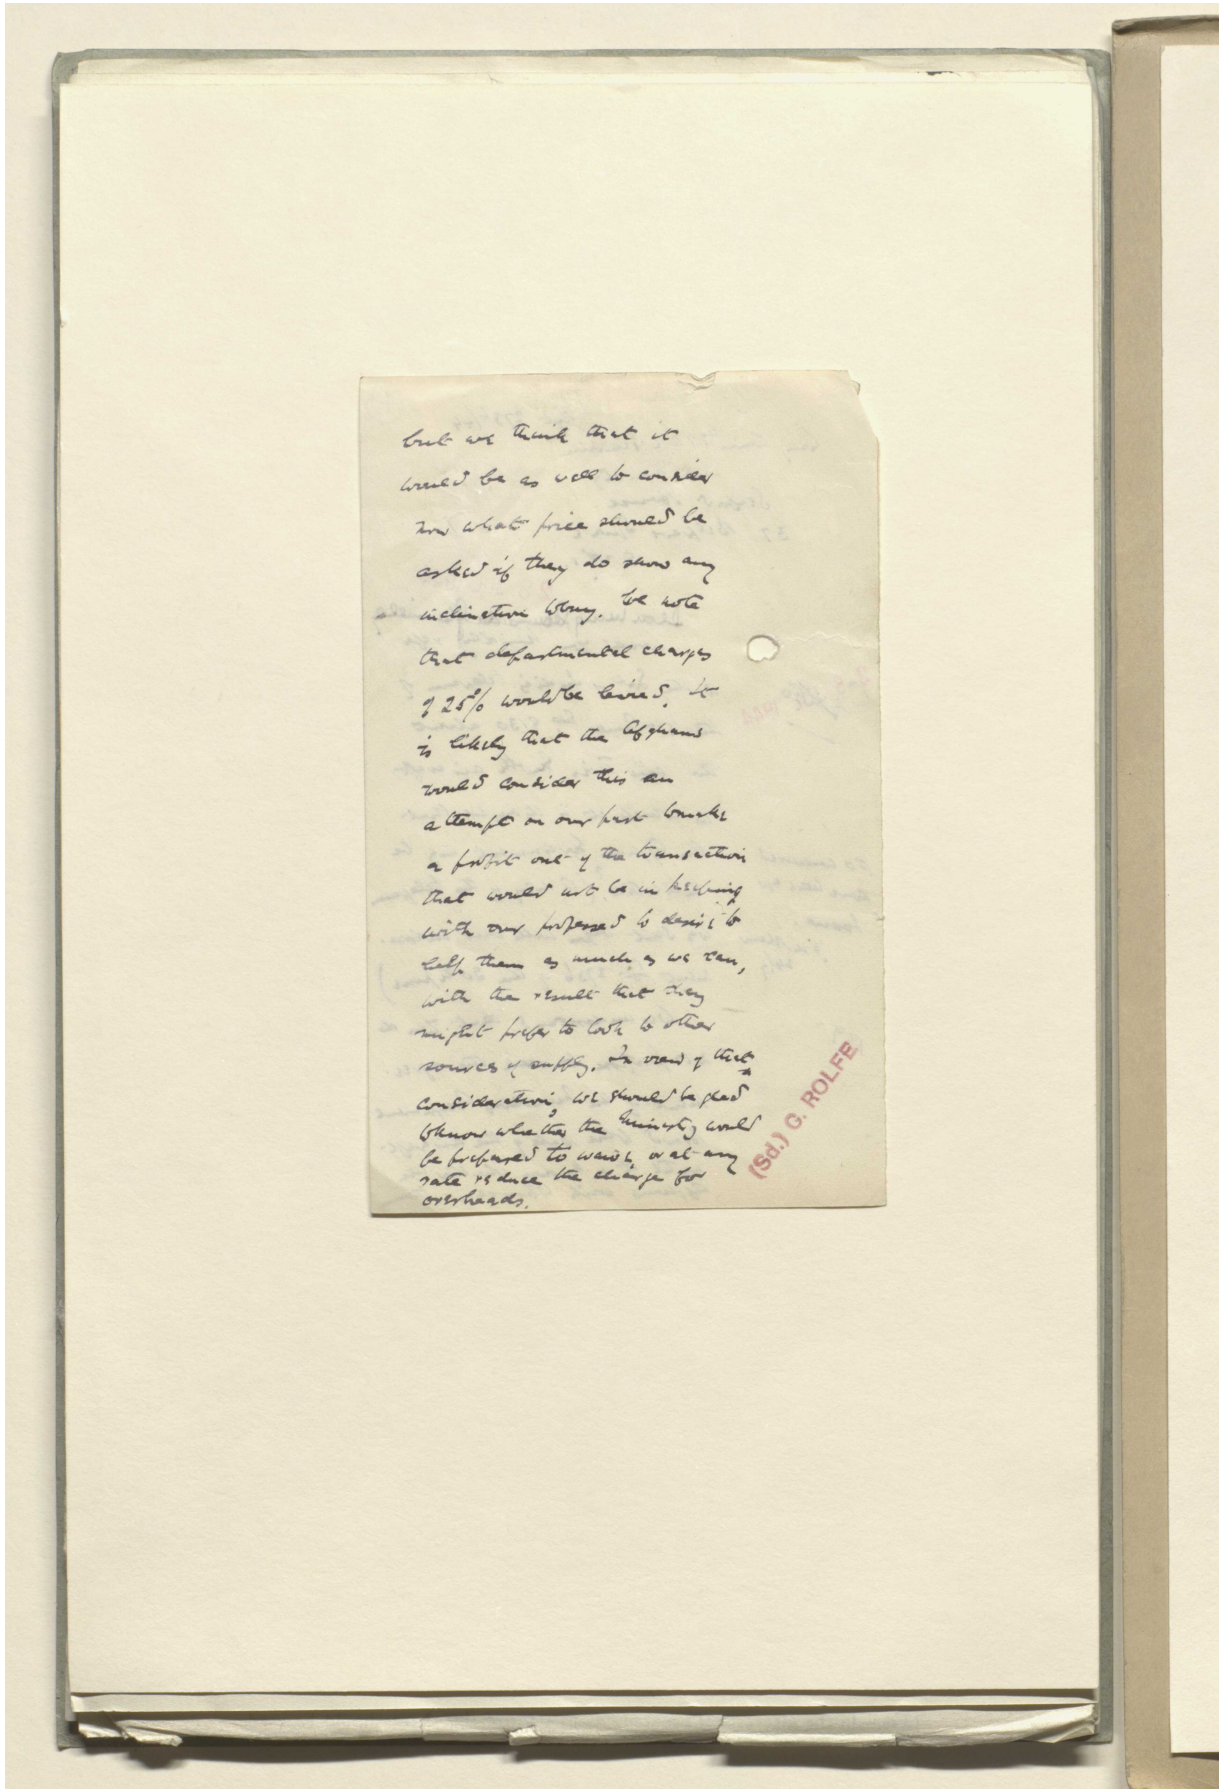 but we think that it
would be as well to consider
now what price should be
asked if they do show any
inclination to buy. We note
that departmental charges
of 25% would be levied. It
is likely that the Afghans
would consider this an
attempt on our part to make
a profit out of the transaction
that would not be in keeping
with our professed to desire to
help them as much as we can,
with the result that they
might prefer to look to other
sources of supply. In view of that
consideration, we should be glad
to know whether the Ministry would
be prepared to waive, or at any
rate reduce the charge for
overheads.
(Sd.) G. ROLFE